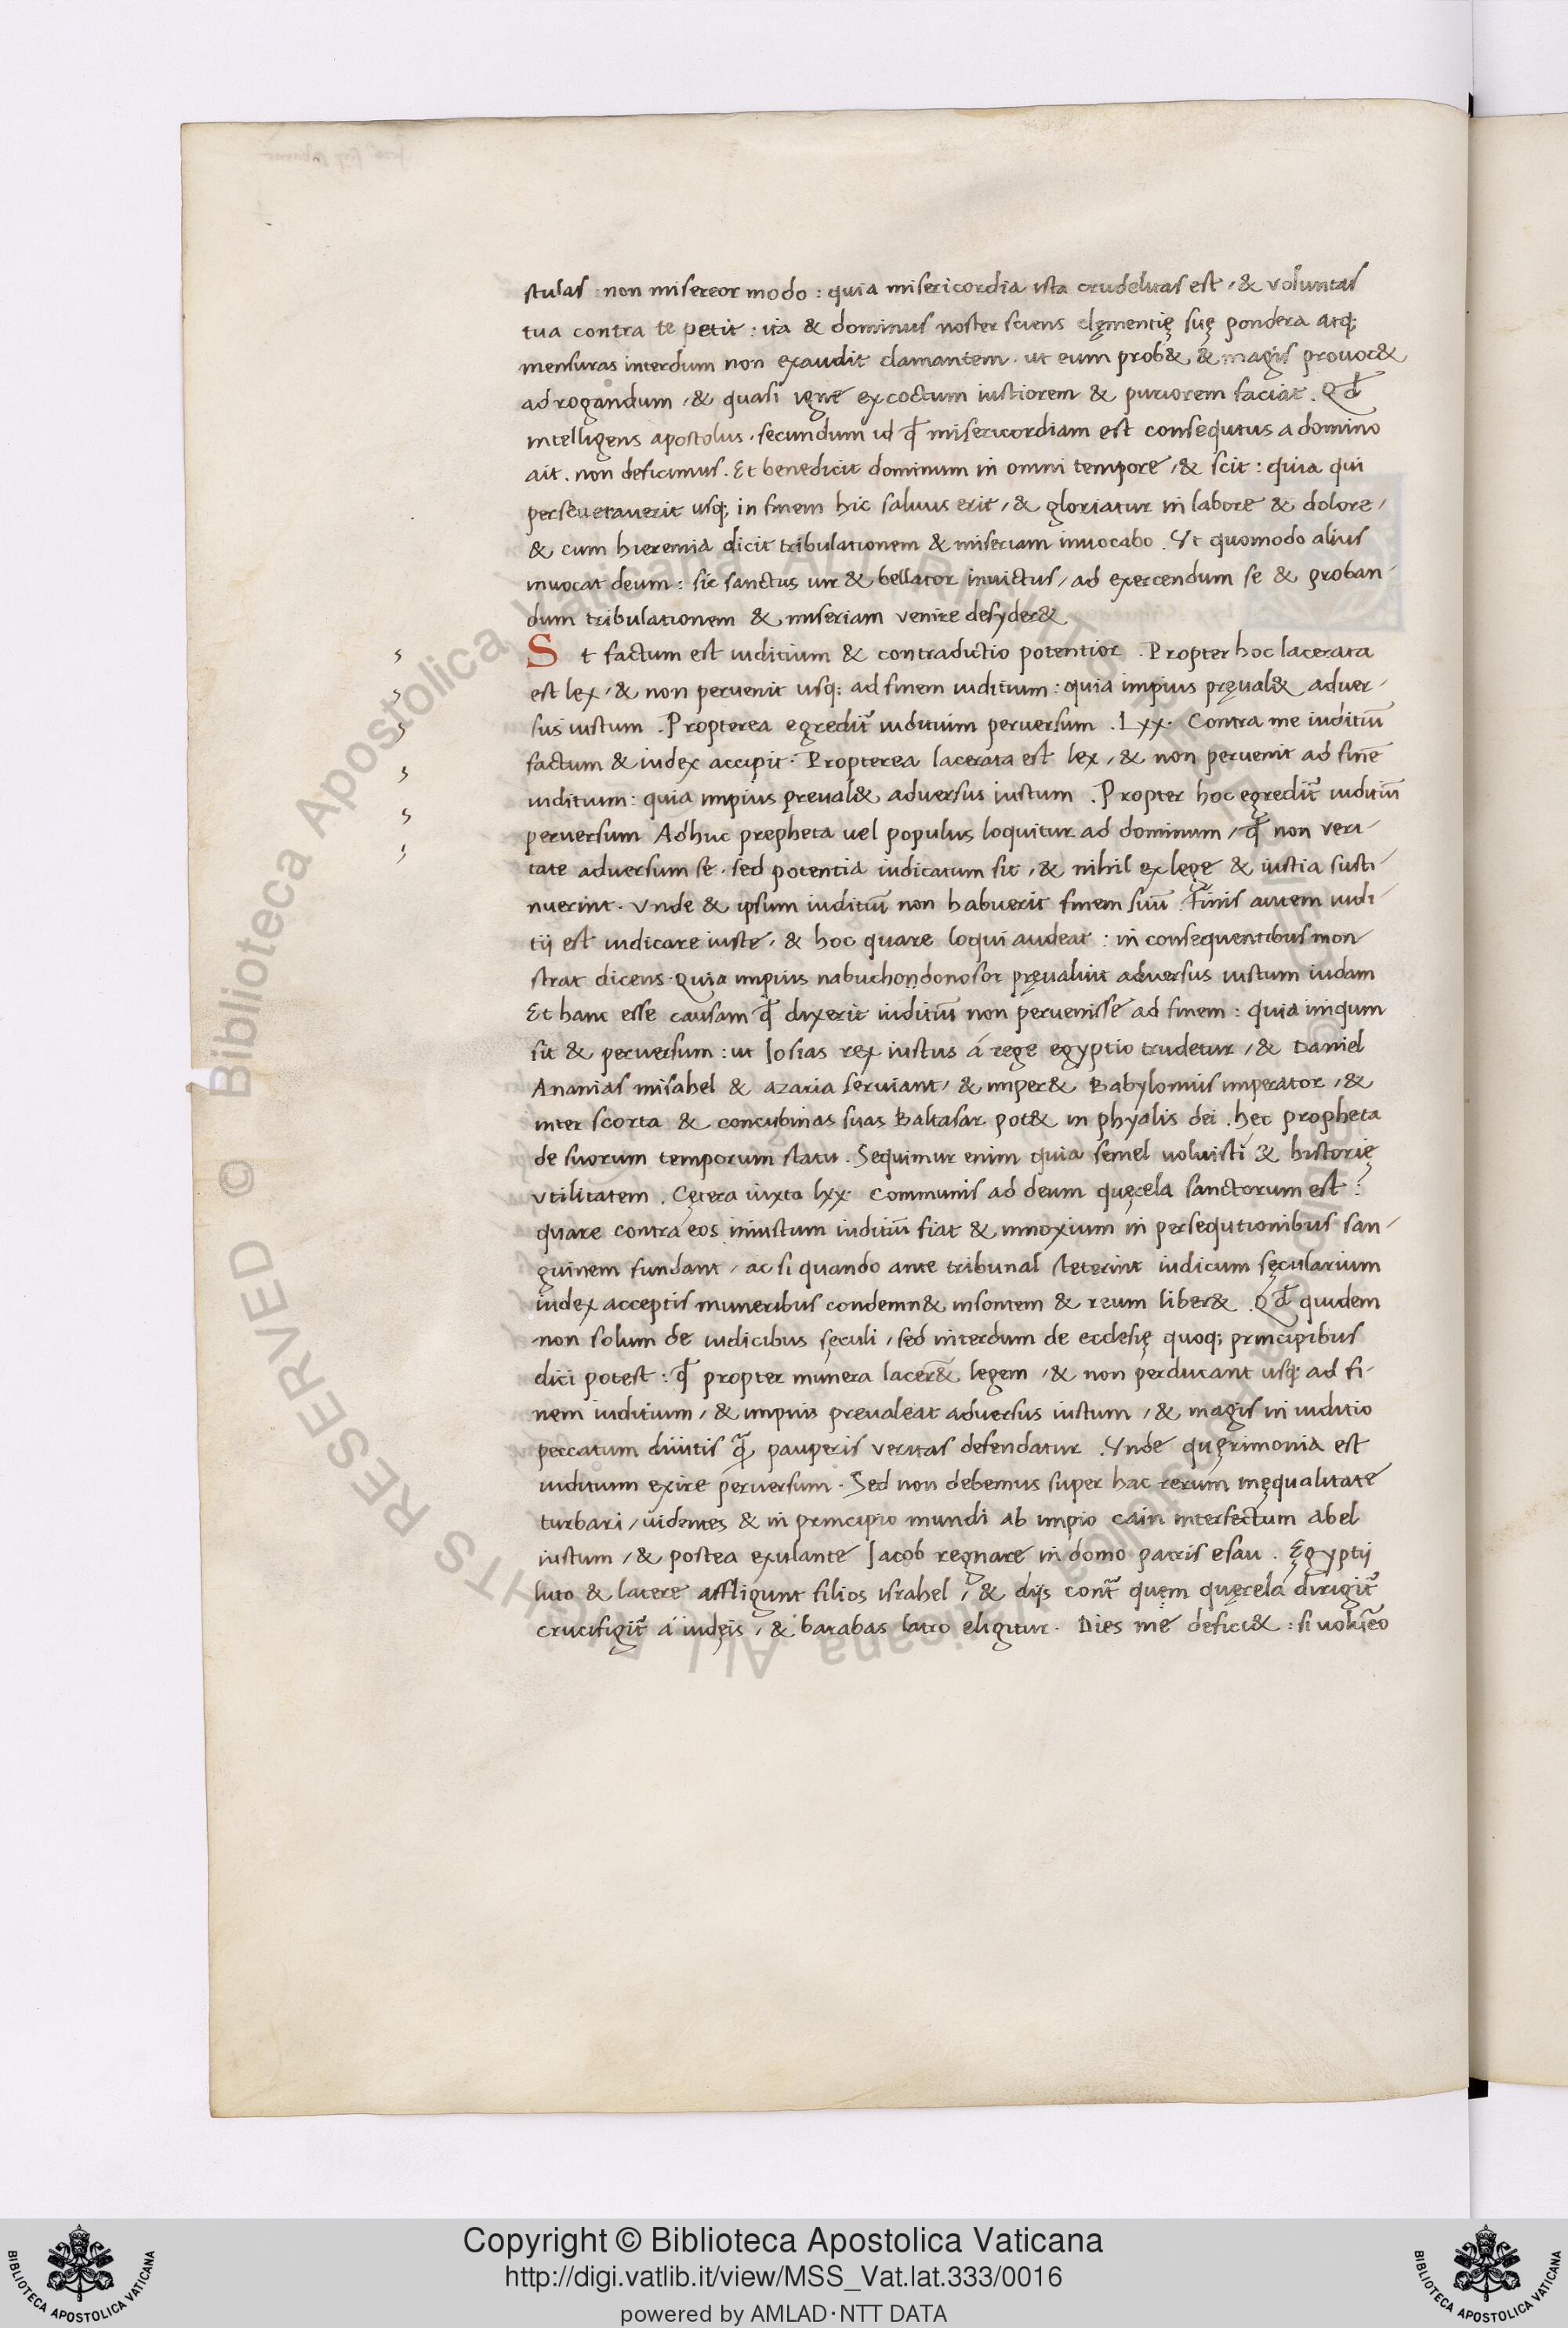 stulas non misereor modo : quia misericordia ista crudelitas est , & voluntas
tua contra te petit : ita & dominus noster sciens clęmentię suę pondera atq;
mensuras interdum non exaudit clamantem . ut eum prob& & magis prouoc&
ad rogandum , & quasi igne excoctum iustiorem & puriorem faciat . Qđ
intelligens apostolus . secundum id qđ misericordiam est consequtus a domino
ait . non deficimus . Et benedicit dominum in omni tempore , & scit : quia qui
perseuerauerit usq; in finem hic saluus erit , & gloriatur in labore & dolore ,
& cum hieremia dicit tribulationem & miseriam inuocabo . Vt quomodo alius
inuocat deum : sic sanctus uir & bellator inuictus , ad exercendum se & proban-
dum tribulationem & miseriam venire desyder&
S t factum est iuditium & contradictio potentior . Propter hoc lacerata
est lex , & non peruenit usq; ad finem iuditium : quia impius pręual& aduer-
sus iustum . Propterea egredit᷑ iuditium perversum . Lxx . Contra me iuditiū
factum & iudex accipit . Propterea lacerata est lex , & non peruenit ad finē
iuditium : quia impius pręual& adversus iustum . Propter hoc egredit᷑ iuditiū
perversum Adhuc prepheta uel populus loquitur ad dominum , qđ non veri-
tate adversum se . sed potentia iudicatum sit , & nihil ex lege & iustia susti-
nuerint . Vnde & ipsum iuditiū non habuerit finem suū . Finis autem iudi-
tij est iudicare iuste , & hoc quare loqui audeat : in consequentibus mon-
strat dicens . Quia impius nabuchondonosor pręualuit adversus iustum iudam
Et hanc esse causam qđ dixerit iuditiū non peruenisse ad finem : quia iniqum
sit & perversum : ut Iosias rex iustus á rege egyptio trudetur , & Daniel
Ananias misahel & azaria seruiant , & imper& Babylonius imperator , &
inter scorta & concubinas suas Baltasar pot& in phyalis dei . hęc propheta
de suorum temporum statu . Sequimur enim quia semel uoluisti & historię
vtilitatem . Cętera iuxta lxx . communis ad deum quęrela sanctorum est :
quare contra eos iniustum iuditiū fiat & innoxium in persequtionibus san-
guinem fundant , ac si quando ante tribunal steterint iudicum sęcularium
iudex acceptis muneribus condemn& insontem & reum liber& . Qđ quidem
non solum de iudicibus sęculi , sed interdum de ecclesię quoq; principibus
dici potest : qđ propter munera lacer& legem , & non perducant usq; ad fi-
nem iuditium , & impius preualeat adversus iustum , & magis in iuditio
peccatum diuitis q̃ pauperis veritas defendatur . Vnde quęrimonia est
iuditium exire perversum . Sed non debemus super hac rerum inęqualitate
turbari , uidentes & in principio mundi ab impio cain interfectum abel
iustum , & postea exulante Iacob regnare in domo patris esau . Ęgyptij
luto & latere affligunt filios israhel , & dn̄s contᷓ quem quęrela dirigit᷑
crucifigit᷑ á iudęis , & barabas latro eligitur . Dies me defici& : si uoluēo
Copyright © Biblioteca Apostolica Vaticana
http://digi.vatlib.it/view/MSS_Vat.lat.333/0016
powered by AMLAD·NTT DATA
BIBLIOTECA APOSTOLICA VATICANA
BIBLIOTECA APOSTOLICA VATICANA